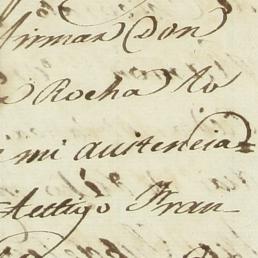 firman Don
Rocha lo
mi autencia=
testigo Fran-